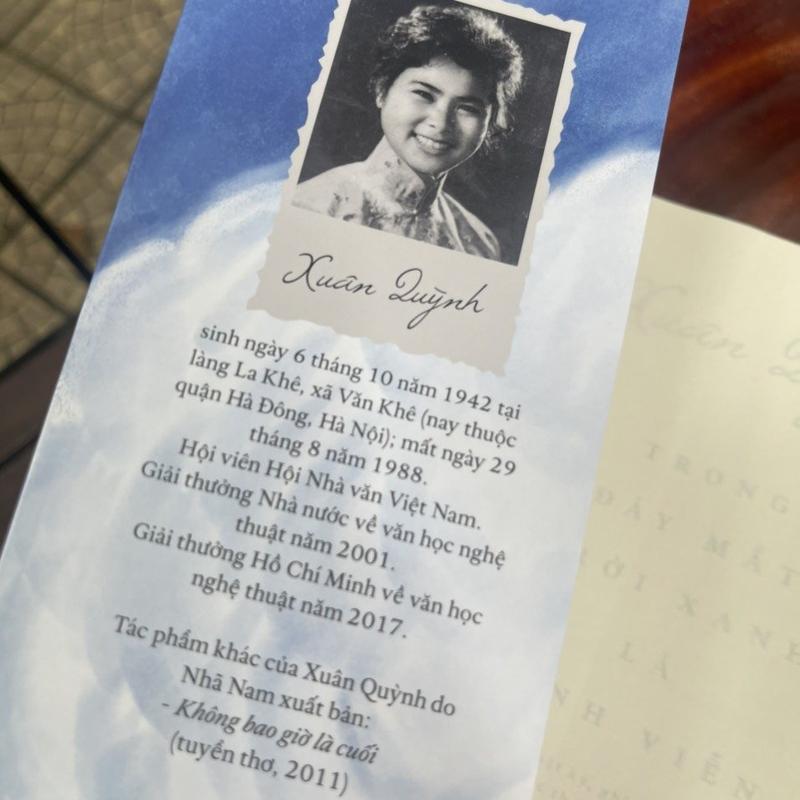 Xuân Quỳnh
sinh ngày 6 tháng 10 năm 1942 tại
làng La Khê, xã Văn Khê (nay thuộc
quận Hà Đông, Hà Nội); mất ngày 29
tháng 8 năm 1988.
Hội viên Hội Nhà văn Việt Nam.
Giải thưởng Nhà nước về văn học nghệ
thuật năm 2001.
Giải thưởng Hồ Chí Minh về văn học
nghệ thuật năm 2017.
Tác phẩm khác của Xuân Quỳnh do
Nhã Nam xuất bản:
- Không bao giờ là cuối
(tuyển thơ, 2011)
Xuân
TRONG
ĐÁY MẮT
XANH
LÀ
VIỄN